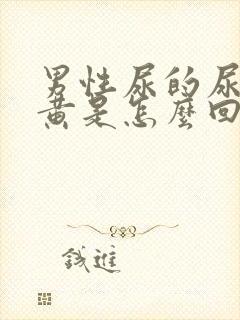 男性尿的尿
黄是怎麼回
錢進